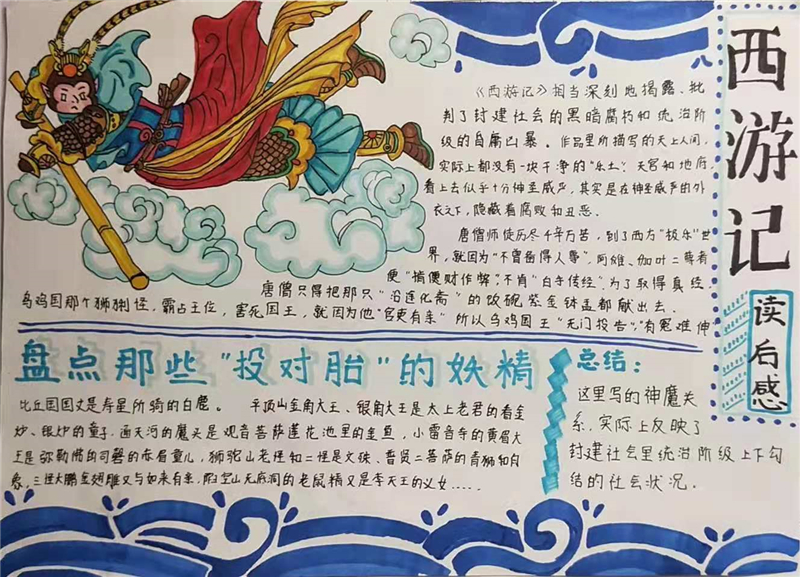 西游记
读后感
《西游记》相当深刻地揭露、批
判了封建社会的黑暗腐朽和统治阶
级的昏庸凶暴。作品里所描写的天上人间,
实际上都没有一块干净的"乐土"。天宫和地府,
看上去似乎十分神圣威严,其实是在神圣威严的外
衣之下,隐藏着腐败和丑恶。
唐僧师徒历尽千辛万苦,到了西方"极乐"世
界,就因为"不曾备得人事",阿难、伽叶二尊者
便"揩便财作弊,不肯"白手传经",为了取得真经,
唐僧只得把那只"沿途化斋"的饭碗紫金钵盂都献出去。
乌鸡国那个狮猁怪,霸占王位,害死国王,就因为他"官吏有亲"所以乌鸡国王"无门投告","有冤难伸
盘点那些"投对胎"的妖精
比丘国国丈是寿星所骑的白鹿。 平顶山金角大王、银角大王是太上老君的看金
炉、银炉的童子。通天河的魔头是观音菩萨莲花池里的金鱼,小雷音寺的黄眉大
王是弥勒佛的司磬的黄眉童儿,狮驼山老怪和二怪是文殊、普贤二菩萨的青狮和白
象,三怪大鹏金翅雕又与如来有亲,陷空山无底洞的老鼠精又是李天王的义女……
总结:
这里写的神魔关
系,实际上反映了
封建社会里统治阶级上下勾
结的社会状况.